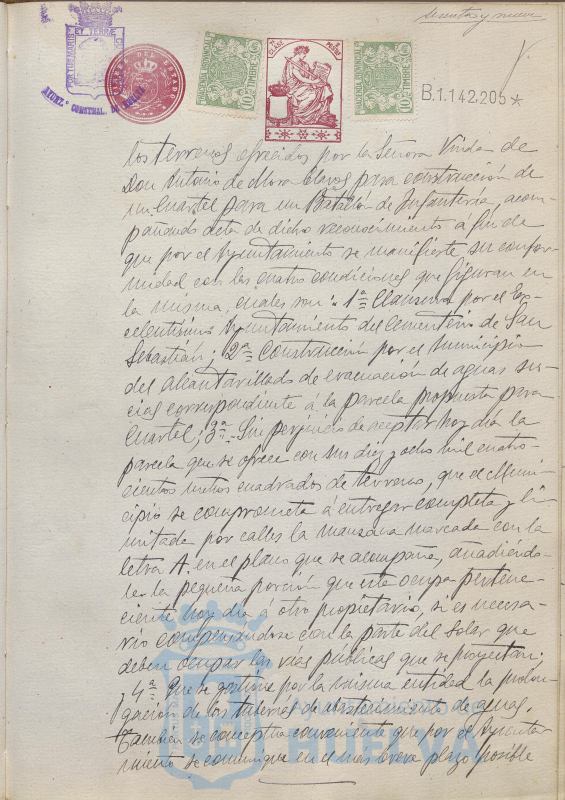 sesenta y nueve
PORTUS MARIS ET TERRAE CUSTODIA
AYUNT.º CONSTNAL. DE HUELVA
TIMBRE DEL ESTADO
HACIENDA MUNICIPAL
TIMBRE
10
CLASE
HACIENDA MUNICIPAL
TIMBRE
10
B.1.142.205*
los terrenos ofrecidos por la Señora Viuda de
Don Antonio de Mora Claros para construcción de
un Cuartel para un Batallón de Infantería, acom-
pañando acta de dicho reconocimiento á fin de
que por el Ayuntamiento se manifieste su confor-
midad con las cuatro condiciones que figuran en
la misma, cuales son: 1ª Clausura por el Ex-
celentísimo Ayuntamiento del Cementerio de San
Sebastián; 2ª Construcción por el Municipio
del alcantarillado de evacuación de aguas su-
cias correspondiente á la parcela propuesta para
Cuartel; 3ª Sin perjuicio de aceptar hoy día la
parcela que se ofrece con sus diez y ocho mil cuatro-
cientos metros cuadrados de terreno, que el Muni-
cipio se comprometa á entregar completa y li-
mitada por calles la manzana marcada con la
letra A. en el plano que se acompaña, añadiéndo-
le la pequeña porción que está ocupa pertene-
ciente hoy día á otro propietario, si es necesa-
rio compensándose con la parte del solar que
deben ocupar las vías públicas que se proyectan;
y 4ª Que se gestione por la misma entidad la prolon-
gación de las tuberías de abastecimiento de aguas.
También se conceptúa conveniente que por el Ayunta-
miento se comunique en el más breve plazo posible
Ayuntamiento
HUELVA